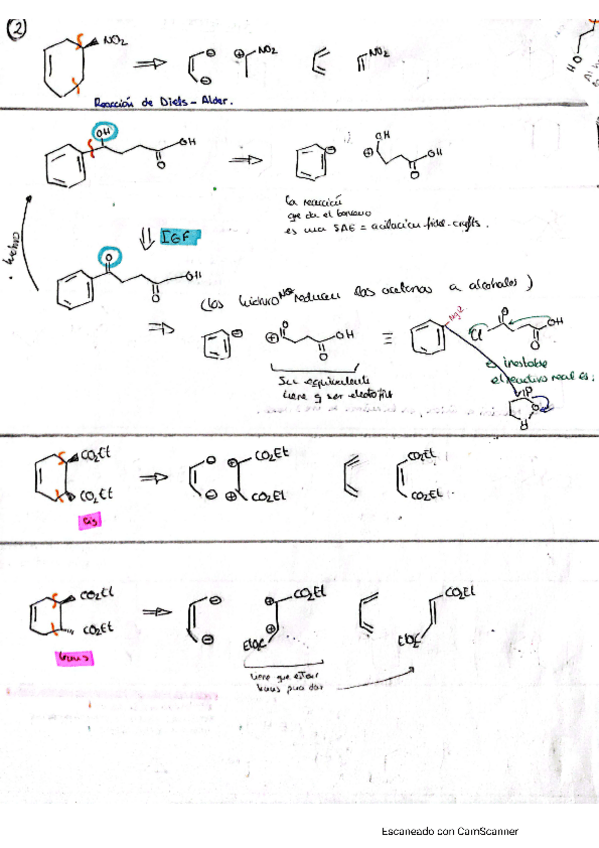 ②
NO2
⊖ ⊕ NO2 NO2
⊖
Reacción de Diels-Alder.
OH
OH
O
⊖ OH ⊕ OH
O
la reacción
que da el benceno
es una SAE = acilación fridel-crafts.
IGF
O
OH
O
⊖ ⊕ O OH
O
O
Cl OH
O
Su equivalente
tiene q ser electrófilo
inestable
el reactivo real es:
CO2Et
CO2Et
cis
⊖ ⊕ CO2Et
⊖ ⊕ CO2Et
CO2Et
CO2Et
CO2Et
CO2Et
trans
⊖ ⊕ CO2Et
⊖ ⊕
CO2Et
tiene que estar
trans para dar
Escaneado con CamScanner